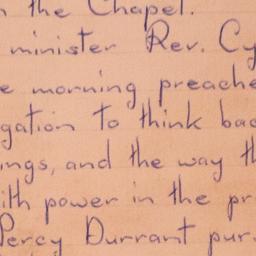 n the Chapel.
minister Rev. Cy
e morning preache
gation to think bac
ings, and the way th
ith power in the pr
Percy Durrant pur